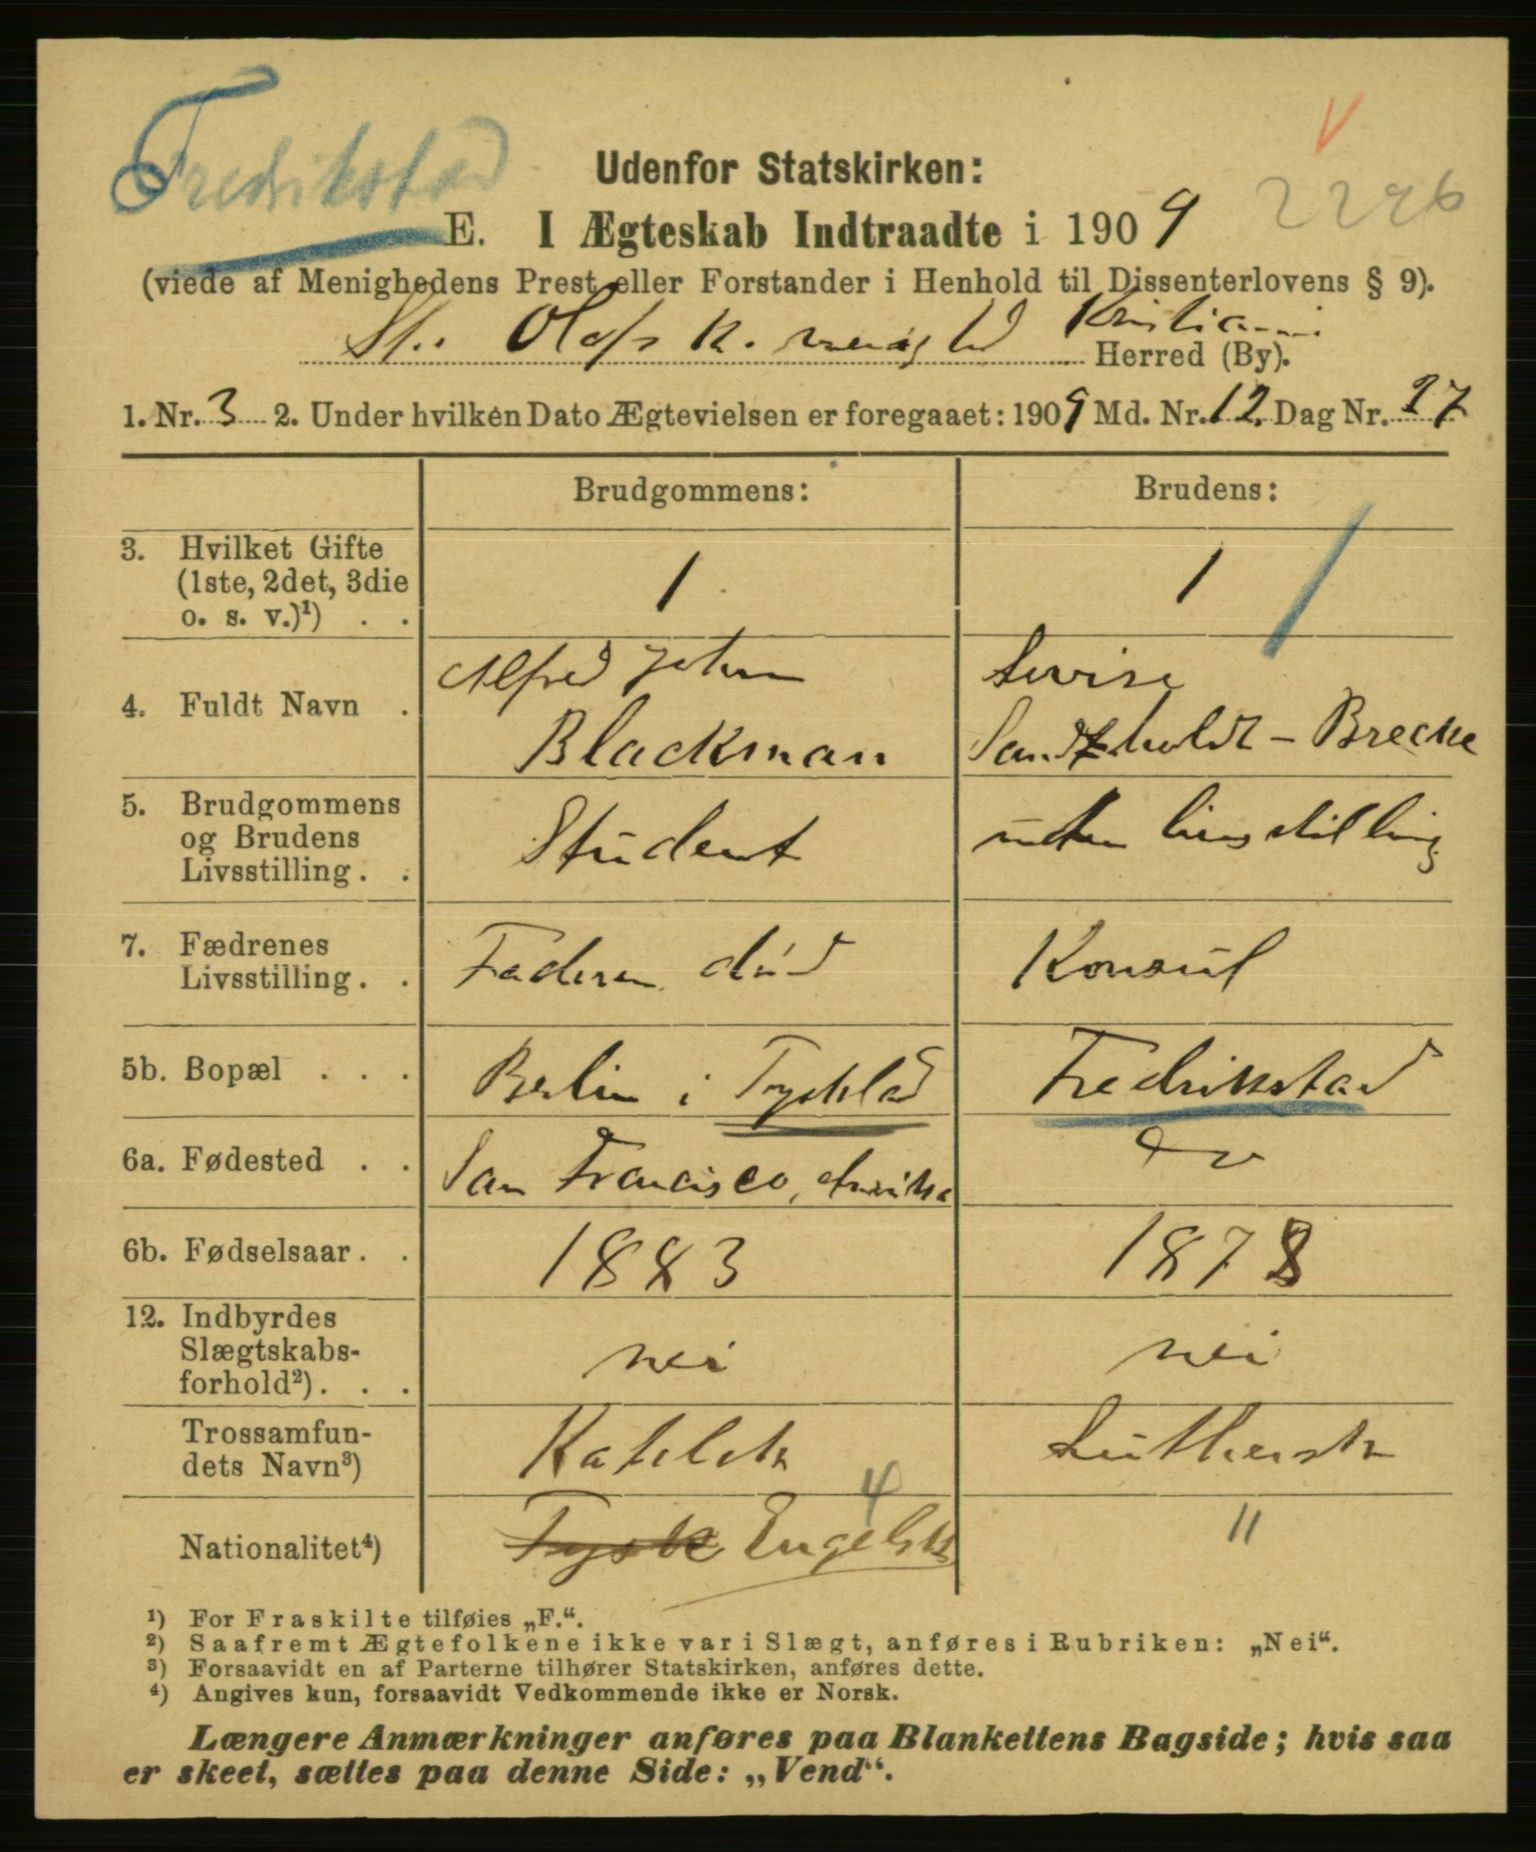 Fredrikstad
V
2296
Udenfor Statskirken:
E. I Ægteskab Indtraadte i 1909
(viede af Menighedens Prest eller Forstander i Henhold til Dissenterlovens § 9).
St. Olafs k. menighed Kristiania Herred (By).
1. Nr. 3 2. Under hvilken Dato Ægtevielsen er foregaaet: 1909 Md. Nr. 12. Dag Nr. 27
Brudgommens: Brudens:
3. Hvilket Gifte (1ste, 2det, 3die o. s. v.)¹) . . 1 1
4. Fuldt Navn . Alfred John Blackman
Sandtholdt - Brecke
5. Brudgommens og Brudens Livsstilling . . Student uden livsstilling
7. Fædrenes Livsstilling . . Faderen død Konsul
5b. Bopæl . . . Berlin i Tyskland Fredrikstad
6a. Fødested . . San Francisco, Amerika do
6b. Fødselsaar . . 1883 1878
12. Indbyrdes Slægtskabs-
forhold²) . . . nei nei
Trossamfun-
dets Navn³) Katolsk Luthersk
4
Nationalitet⁴) Tysk Engelsk "
¹) For Fraskilte tilføies „F.“.
²) Saafremt Ægtefolkene ikke var i Slægt, anføres i Rubriken: „Nei“.
³) Forsaavidt en af Parterne tilhører Statskirken, anføres dette.
⁴) Angives kun, forsaavidt Vedkommende ikke er Norsk.
Længere Anmærkninger anføres paa Blankettens Bagside; hvis saa
er skeet, sættes paa denne Side: „Vend“.